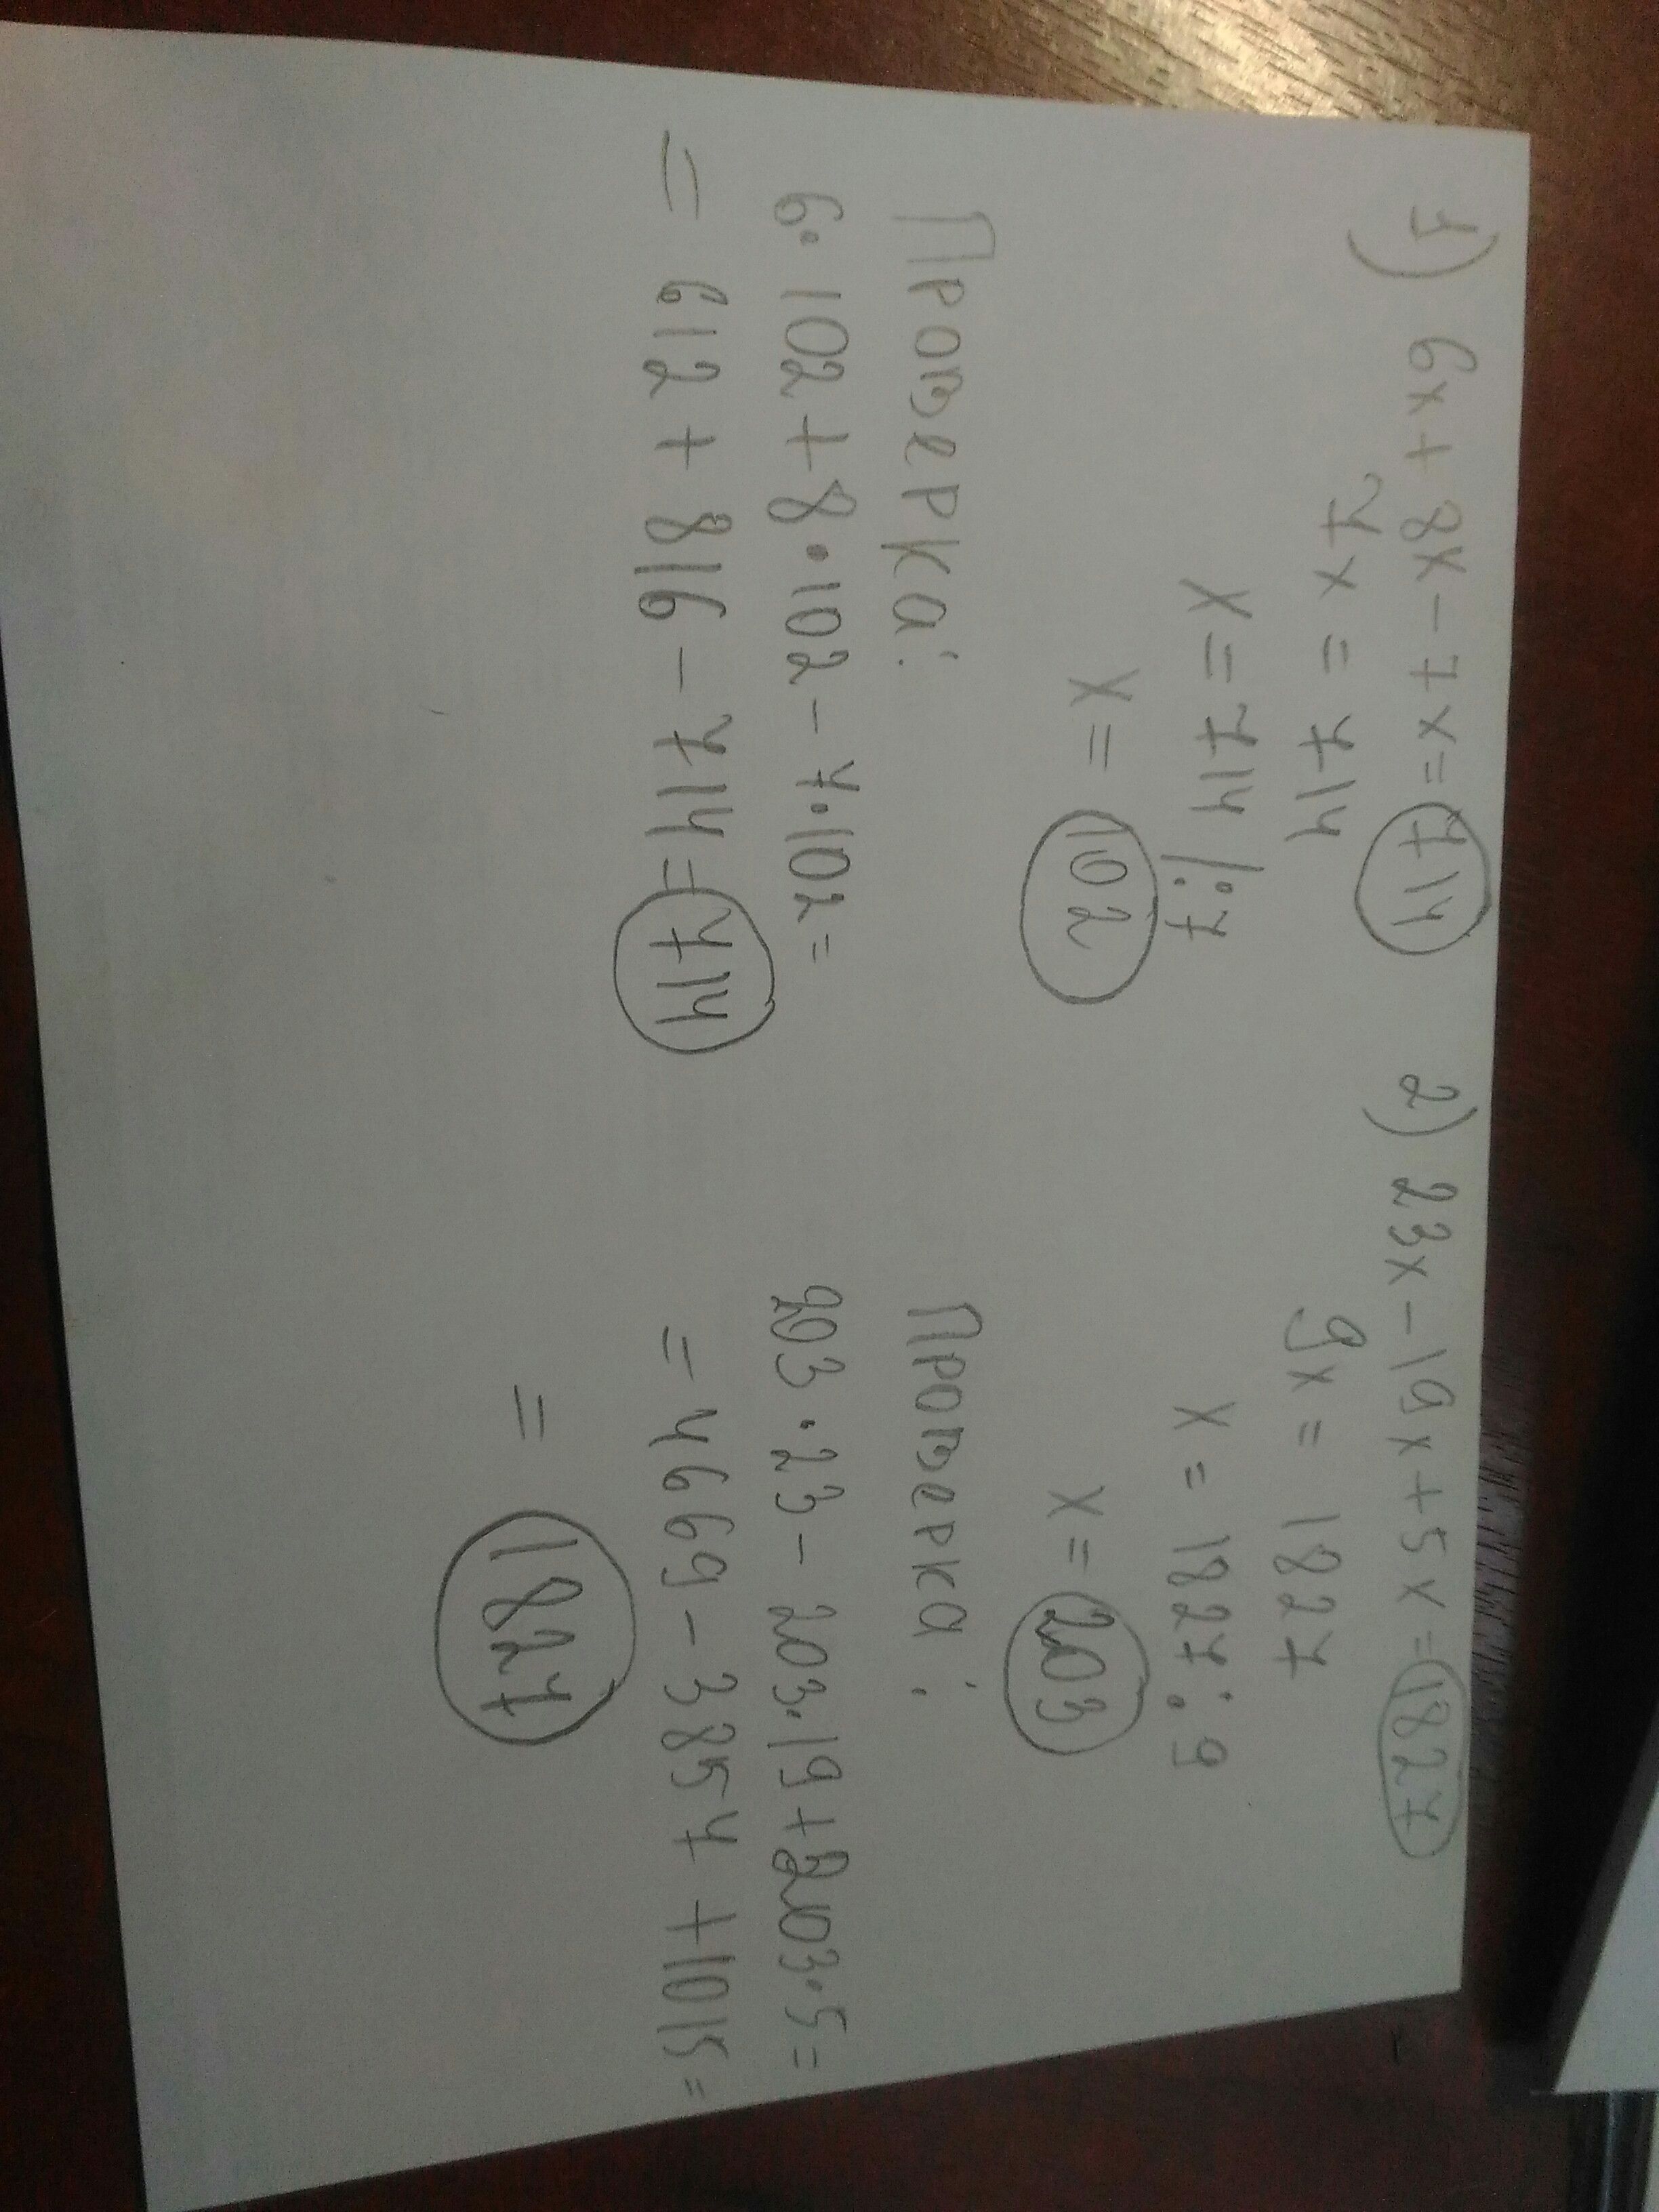 1) 6x + 8x - 7x = 714
7x = 714
x = 714 |:7
x = 102
Проверка:
6·102 + 8·102 - 7·102 =
= 612 + 816 - 714 = 714
2) 23x - 19x + 5x = 1827
9x = 1827
x = 1827 : 9
x = 203
Проверка:
203·23 - 203·19 + 203·5 =
= 4669 - 3857 + 1015 =
= 1827